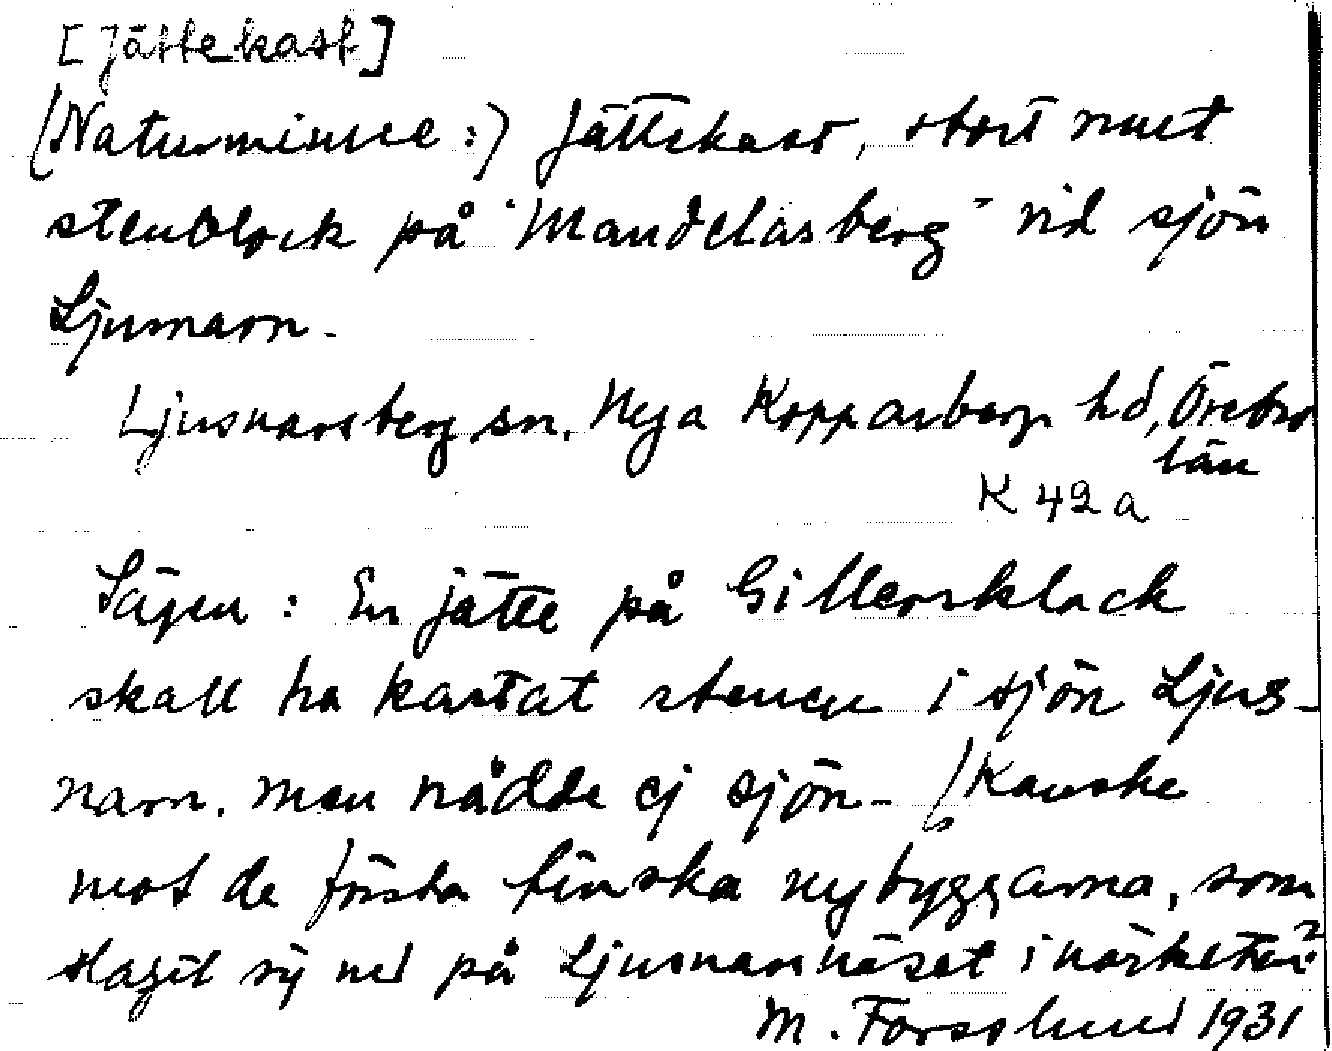 [Jättekast]
(Naturminne:) Jättekast, stort runt
stenblock på "Mandelåsberg" vid sjön
Ljusnarn.
Ljusnarsberg sn. Nya Kopparberg hd, Örebro
län
K 42 a
Sägen: En jätte på Gillersklack
skall ha kastat stenen i sjön Ljus-
narn. men nådde ej sjön. (Kanske
mot de första finska nybyggarna, som
slagit sig ned på Ljusnarnäset i närheten?
M. Forslund 1931